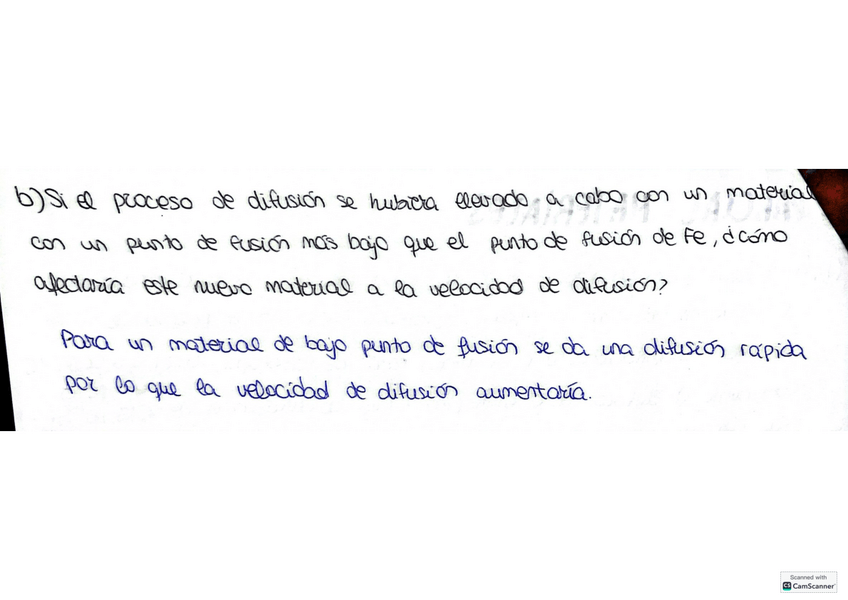 b) Si el proceso de difusión se hubiera llevado a cabo con un material
con un punto de fusión más bajo que el punto de fusión de Fe, ¿cómo
afectaría este nuevo material a la velocidad de difusión?
Para un material de bajo punto de fusión se da una difusión rápida
por lo que la velocidad de difusión aumentaría.
Scanned with
CS CamScanner